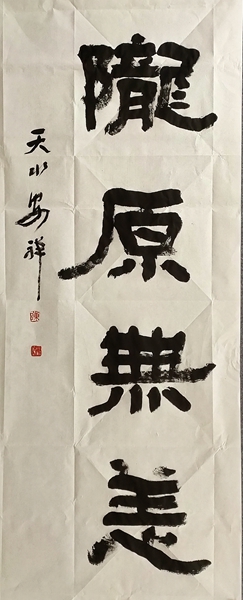 隴原無恙
天水安祥